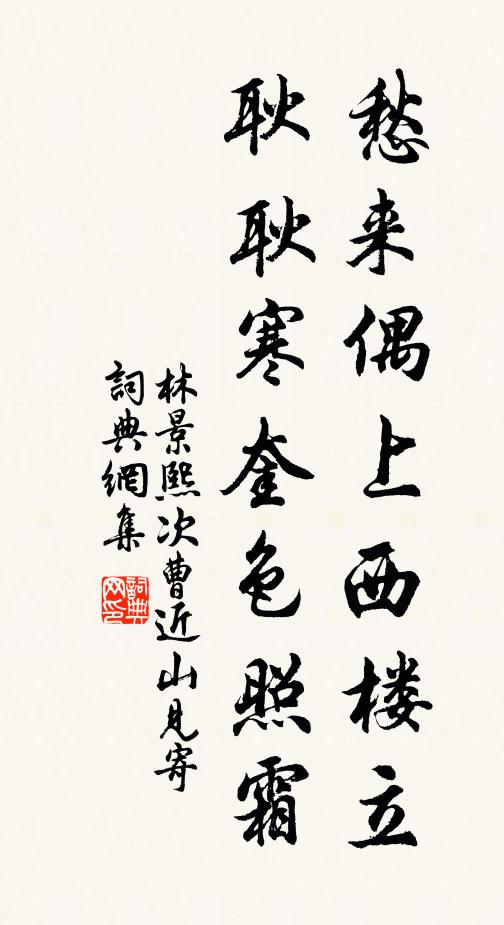 愁来偶上西楼立
耿耿寒奎色照霜
林景熙次曹近山見寄
詞典網集
詞典網印